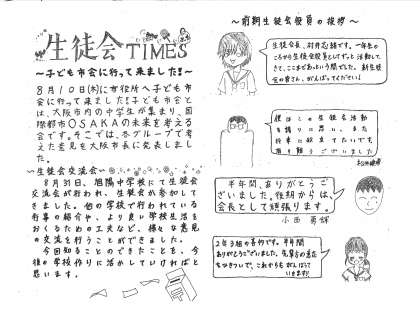 生徒会TIMES
～子ども市会に行って来ました!～
8月10日(木)に市役所へ子ども市
会に行って来ました!子ども市会と
は、大阪市内の中学生が集まり、国
際都市OSAKAの未来を考える
会です。そこでは、各グループで考
えた意見を大阪市長に発表しまし
た。
～生徒会交流会～
8月31日、旭陽中学校にて生徒会
交流会が行われ、生徒会が参加して
きました。他の学校で行われている
行事の紹介や、より良い学校生活を
おくるための工夫など、様々な意見
の交流を行うことができました。
今回知ることのできたことも、今
後の学校作りに活かしていければと
思います。
～前期生徒会役員の挨拶～
生徒会長、村井
ころから生徒会役員としてずっと活動して
きて、ここまであっという間でした。新生徒
会の皆さん、がんばってください!
僕はこの生徒会活動
を誇りに思い、また
行事に役立てたいでも
有り難うございました
半年間、ありがとうござ
いました。後期からは、
会長として頑張ります。
小西 勇輝
2年3組の
ありがとうございました。先輩方の意志
をひきついで、これからもがんばって
いきます!